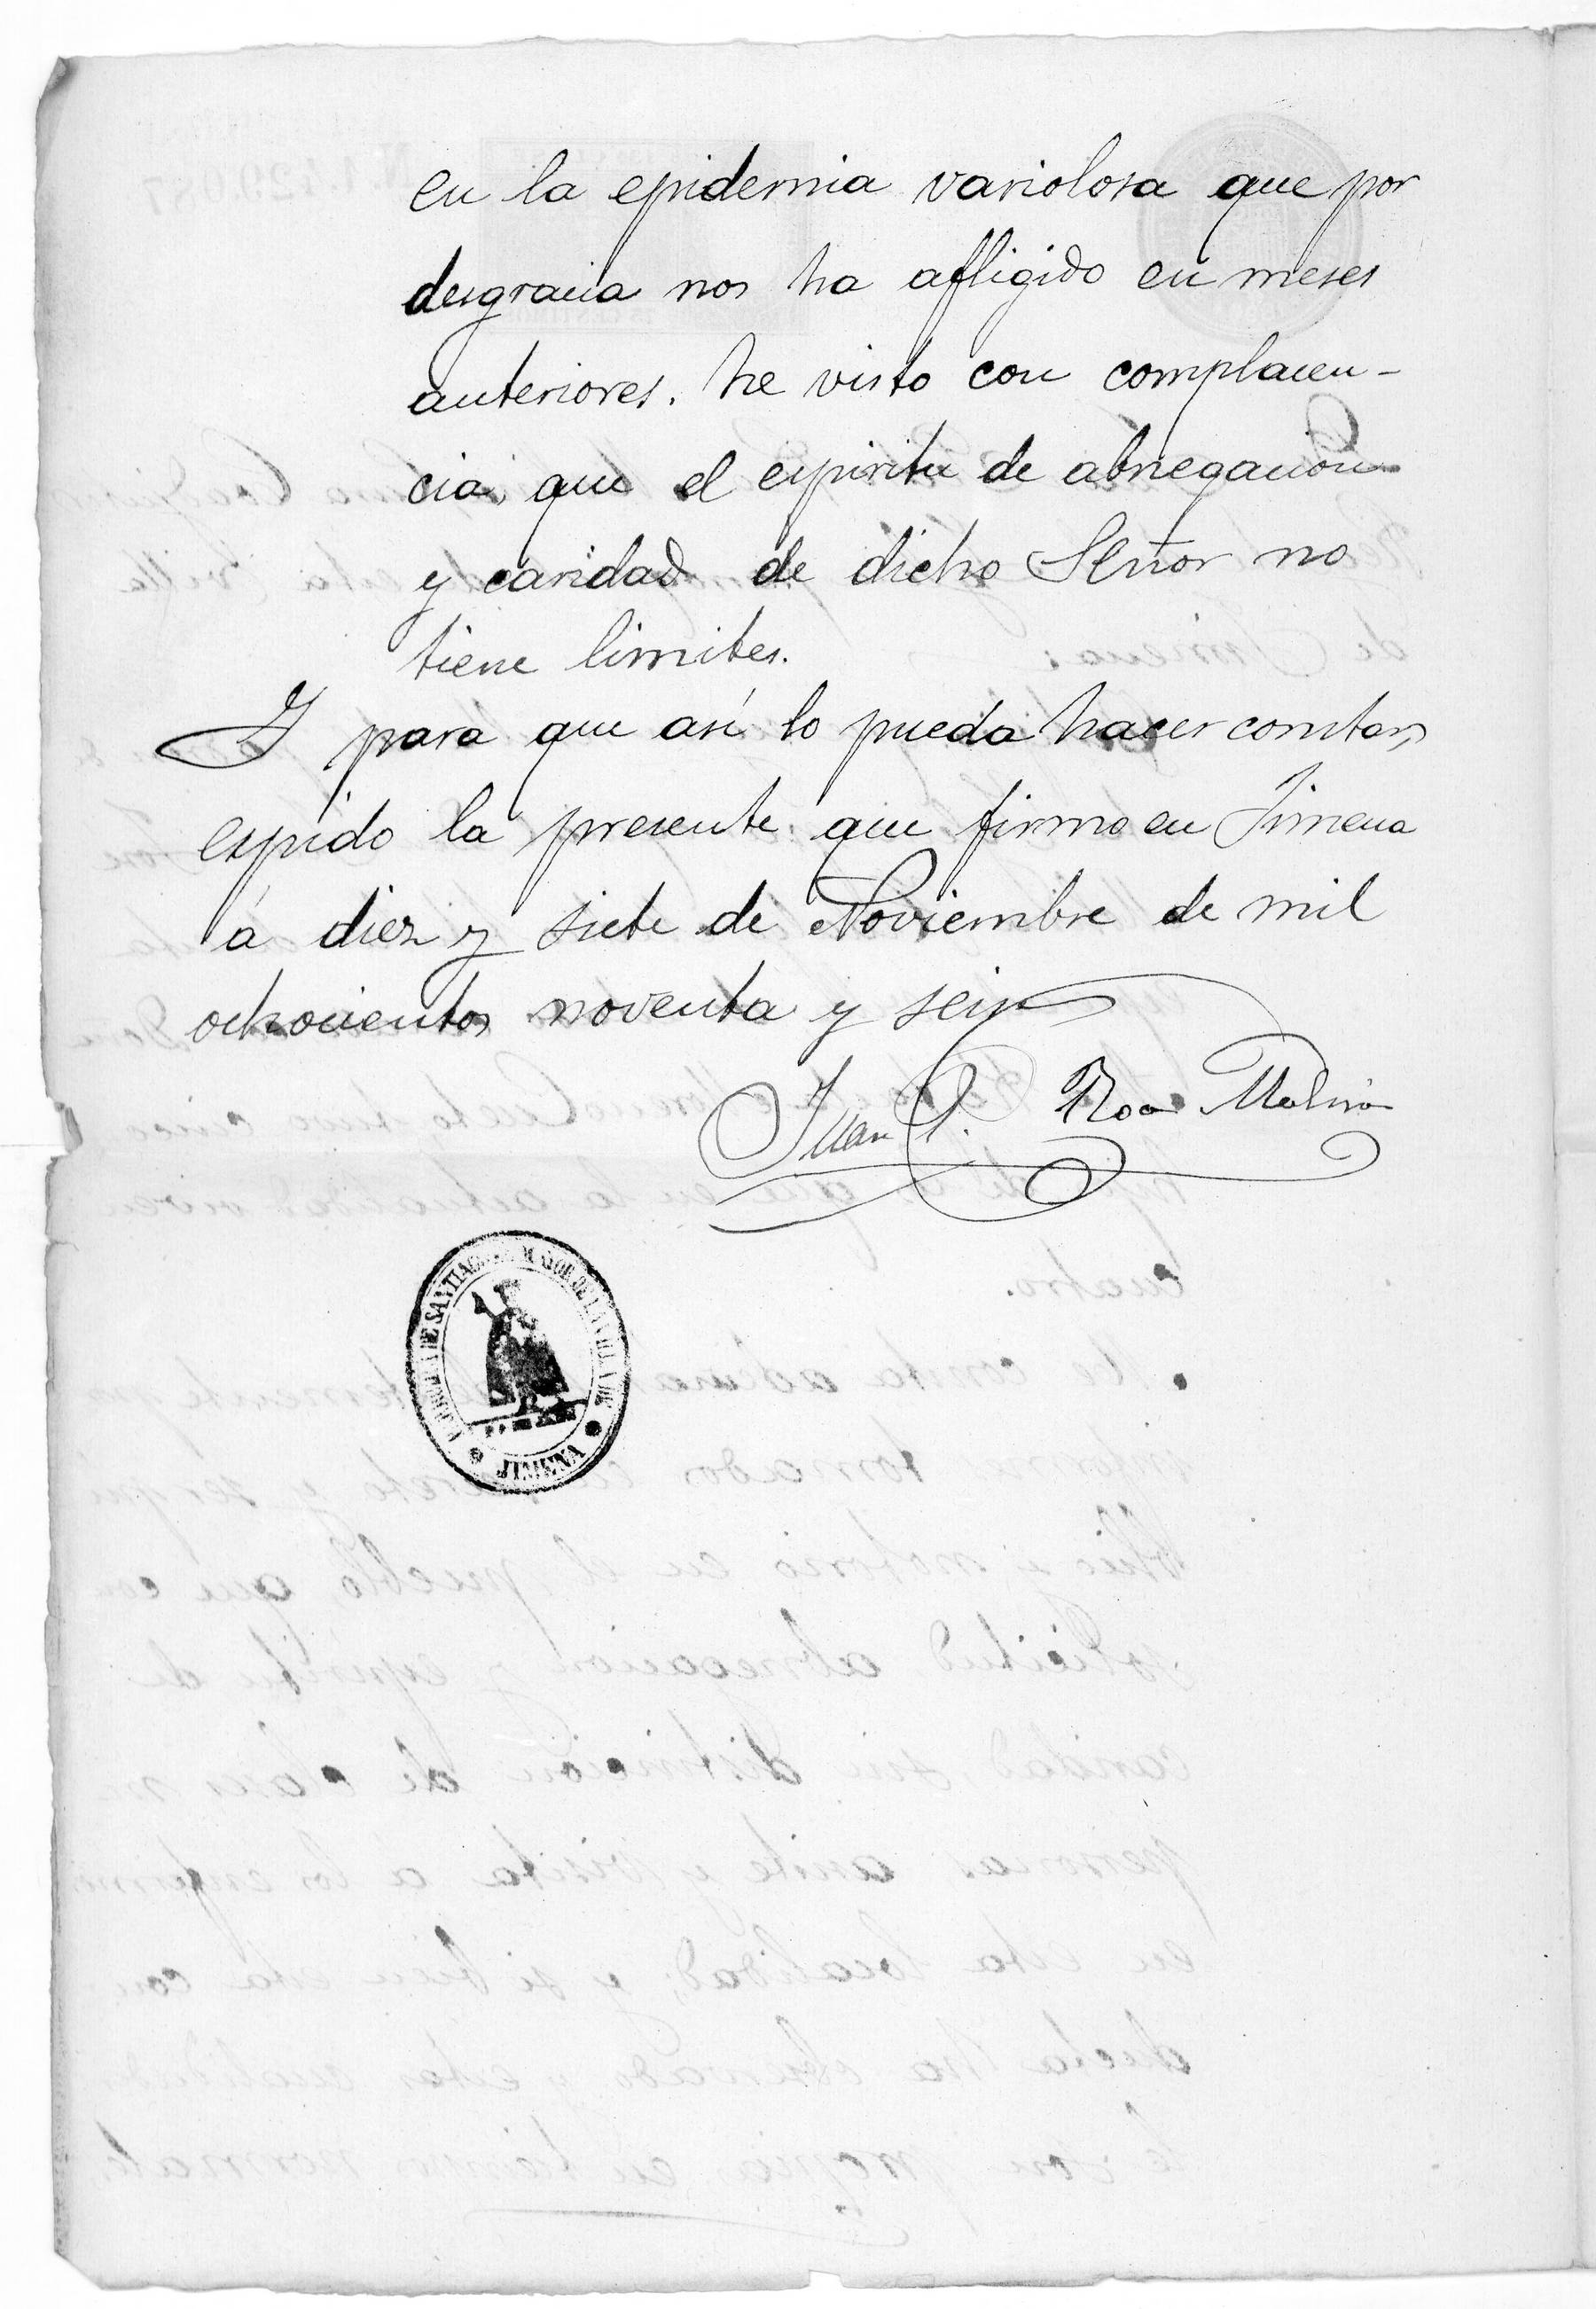 en la epidemia variolosa que por
desgracia nos ha afligido en meses
anteriores. he visto con complacen-
cia, que el espiritu de abnegacion
y caridad de dicho Señor no
tiene limites.
Y para que asi lo pueda hacer constar,
espido la presente que firmo en Jimena
á diez y siete de Noviembre de mil
ochocientos noventa y seis
Juan P. Roa Molina
DE SANTIAGO MAYOR DE LA VILLA DE
JIMENA